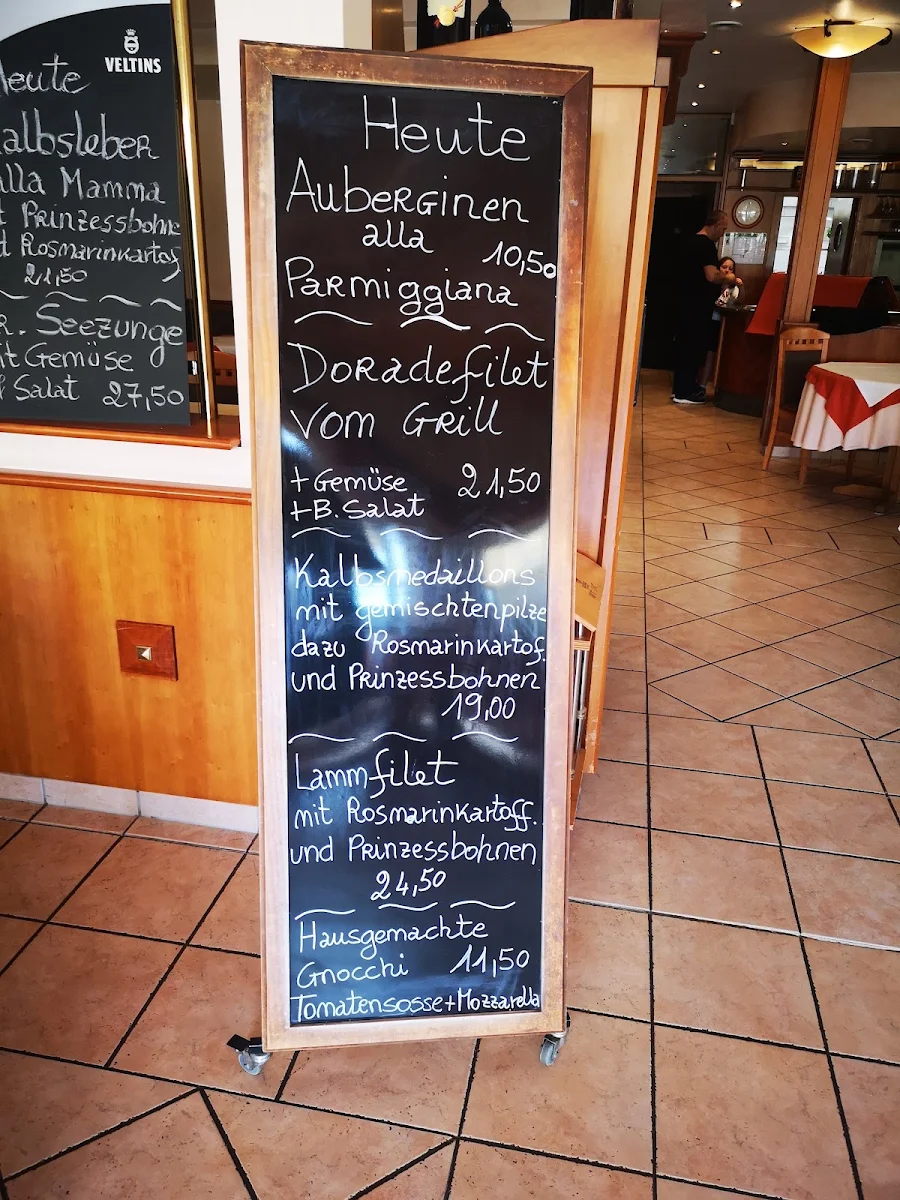 VELTINS
Heute
Kalbsleber
alla Mamma
Prinzessbohne
Rosmarinkartof
21,50
Seezunge
Gemüse
Salat 27,50
Heute
Auberginen
alla
10,50
Parmiggiana
Doradefilet
vom Grill
+ Gemüse 21,50
+B. Salat
Kalbsmedaillons
mit gemischtenpilze
dazu Rosmarinkartof.
und Prinzessbohnen
19,00
Lammfilet
mit Rosmarinkartoff.
und Prinzessbohnen
24,50
Hausgemachte
Gnocchi 11,50
Tomatensosse+Mozzarella